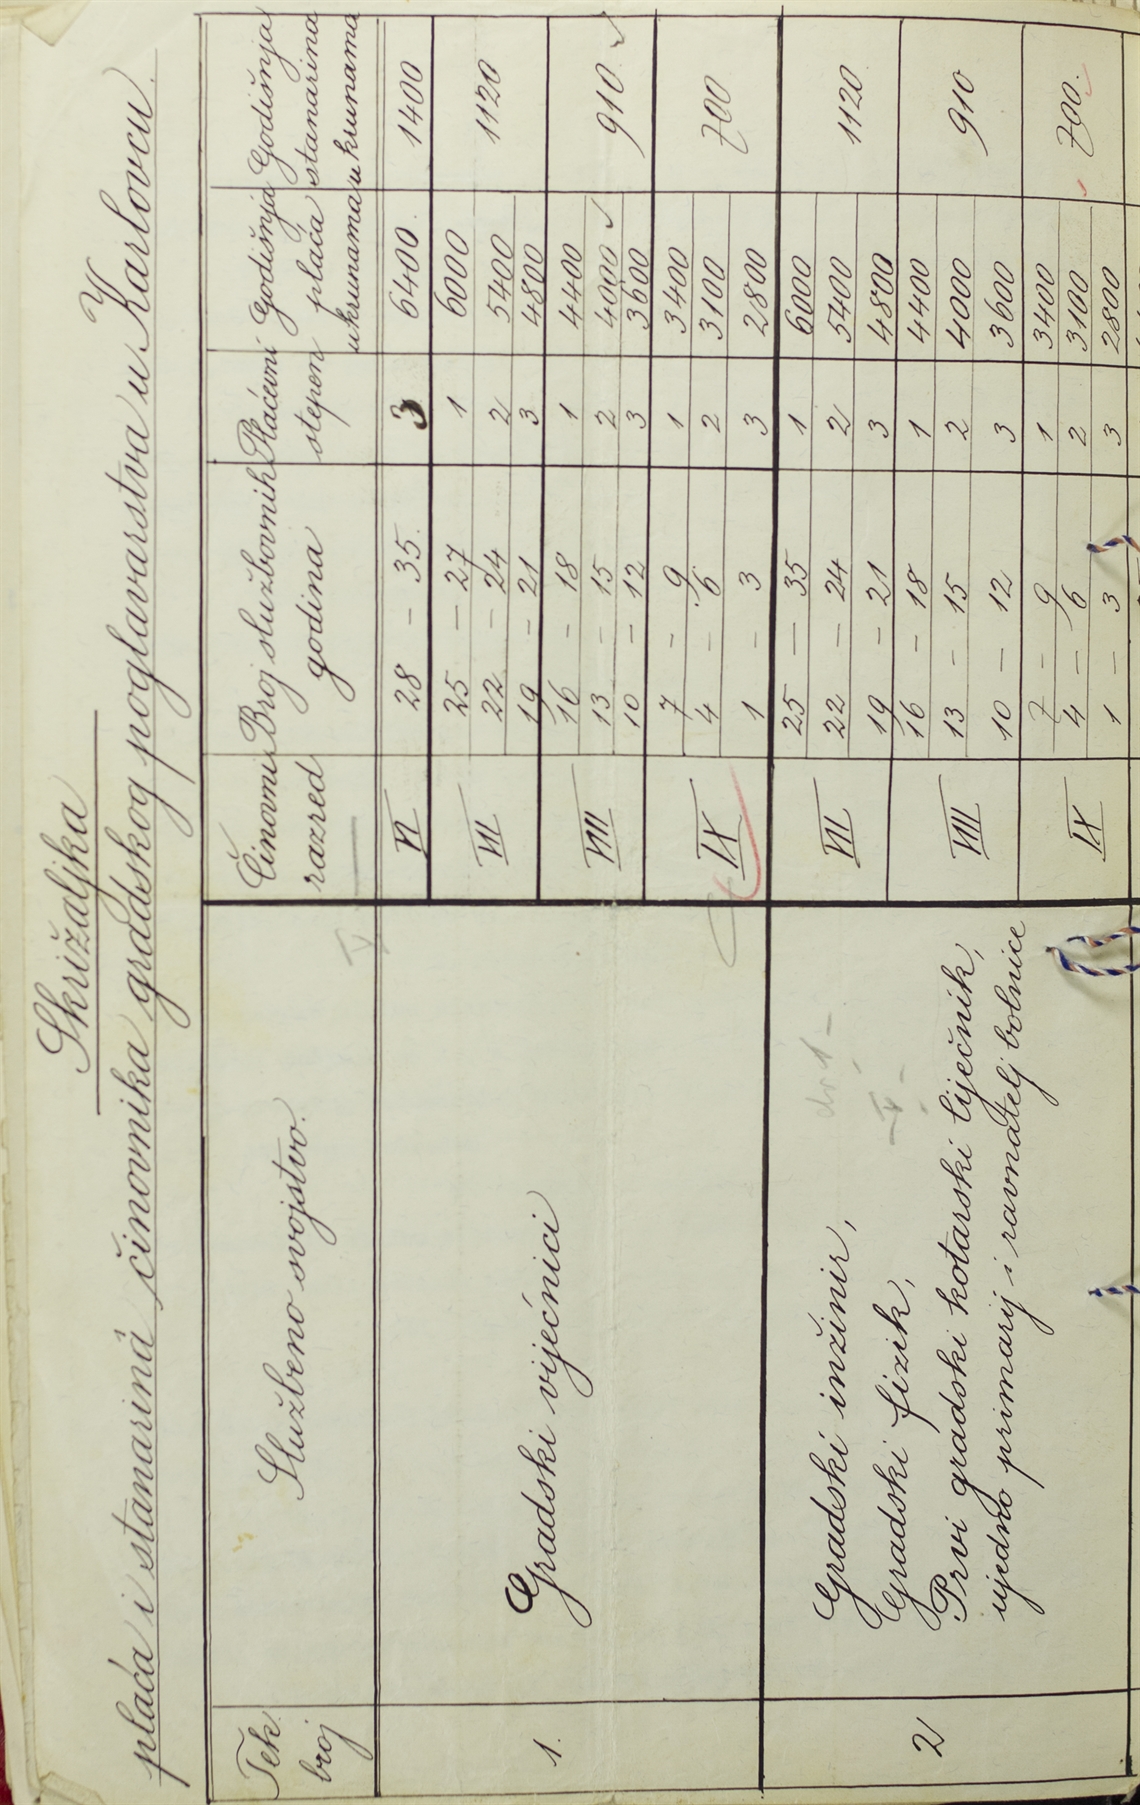 Skrižaljka
plaća i stanarinâ činovnika gradskog poglavarstva u Karlovcu.
Tek. broj
Službeno svojstvo.
Činovni razred
Broj službovnih godina
Plaćevni stepen
Godišnja plaća u krunama
Godišnja stanarina u krunama
1. Gradski vijećnici
VI 28 – 35. 3 6400. 1400
VII 25 – 27 1 6000 1120
22 – 24 2 5400
19 – 21 3 4800
VIII 16 – 18 1 4400 910
13 – 15 2 4000
10 – 12 3 3600
IX 7 – 9 1 3400 700
4 – 6 2 3100
1 – 3 3 2800
2 Gradski inžinir,
Gradski fizik,
Prvi gradski kotarski liječnik,
ujedno primarij i ravnatelj bolnice
VII 25 – 35 1 6000 1120
22 – 24 2 5400
19 – 21 3 4800
VIII 16 – 18 1 4400 910
13 – 15 2 4000
10 – 12 3 3600
IX 7 – 9 1 3400 700.
4 – 6 2 3100
1 – 3 3 2800